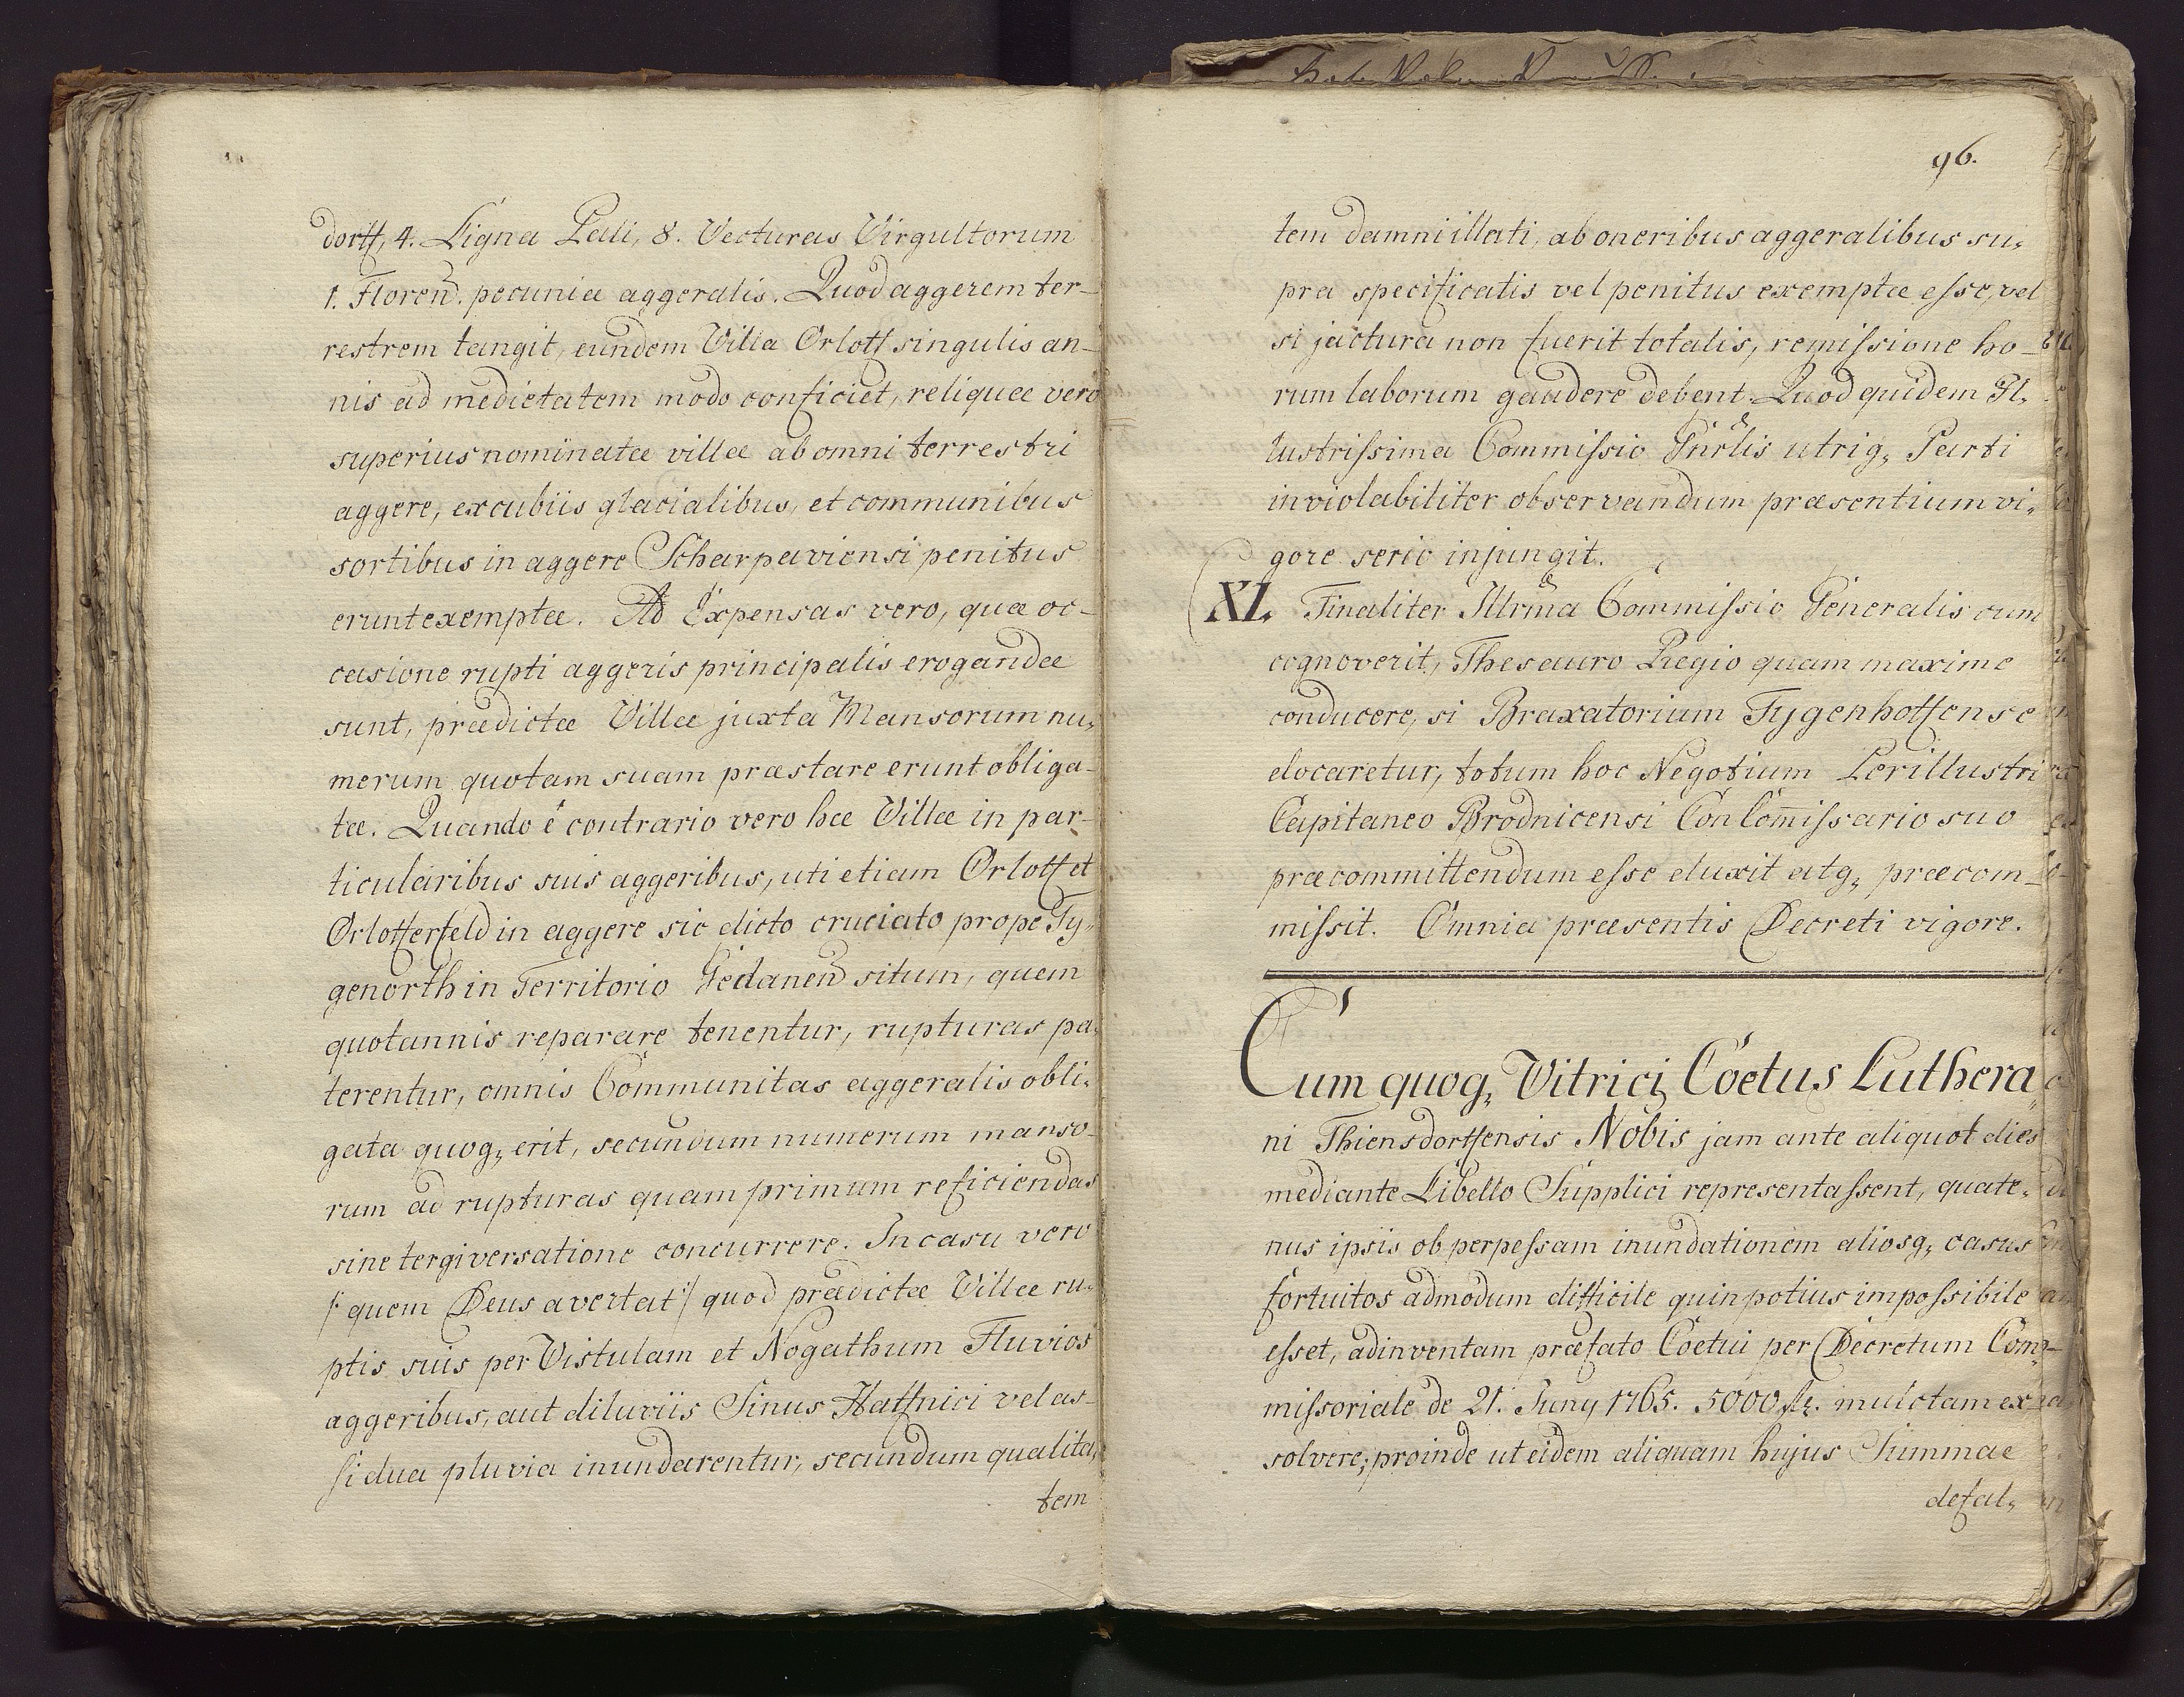 dorff, 4. Ligna Pali, 8. Vecturas Virgultorum
1. Floren. pecunia aggeralis. Quod aggerem ter-
restrem tangit, eundem Villa Orloff singulis an-
nis ad medietatem modo conficiet, reliquæ vero
superius nominatæ villæ ab omni terrestri
aggere, excubiis glacialibus, et communibus
sortibus in aggere Scharpaviensi penitus
erunt exemptæ. Ad Expensas vero, quæ oc-
casione rupti aggeris principalis erogandæ
sunt, prædictæ Villæ juxta Mansorum nu,
merum quotam suam præstare erunt obliga-
tæ. Quando é contrario vero hæ Villæ in par-
ticularibus suis aggeribus, uti etiam Orloff et
Orlofferfeld in aggere sic dicto cruciato prope Ty,,
genorth in Territorio Gedanen situm, quem
quotannis reparare tenentur, rupturas pa,
terentur, omnis Communitas aggeralis obli,
gata quoq, erit, secundum numerum manso-
rum ad rupturas quam primum reficiendas
sine tergiversatione concurrere. In casu vero
/: quem Deus avertat :/ quod prædictæ Villæ ru,
ptis suis per Vistulam et Nogathum Fluvios
aggeribus, aut diluviis Sinus Haffnici vel as-
sidua pluvia inundarentur, secundum qualita,
tem
96.
tem damni illati, ab oneribus aggeralibus su,
pra specificatis vel penitus exemptæ esse, vel
si jactura non fuerit totalis, remissione ho-
rum laborum gaudere debent. Quod quidem Il,
lustrissima Commissio Gnrlis utriq, Parti
inviolabiliter observandum præsentium vi,
gore serio injungit.
XI. Finaliter Illrma Commissio Generalis cum
cognoverit, Thesauro Regio quam maxime
conducere, si Braxatorium Tygenhoffense
elocaretur, totum hoc Negotium Perillustri
Capitaneo Brodnicensi ConCom̄issario suo
præcommittendum esse duxit atq, præcom-
missit. Omnia præsentis Decreti vigore.
Cum quoq, Vitrici Coetus Luthera,,
ni Thiensdorffensis Nobis jam ante aliquot dies
mediante Libello Supplici representassent, quate,
nus ipsis ob perpessam inundationem aliosq, casus
fortuitos admodum difficile quin potius impossibile
esset, adinventam præfato Coetui per Decretum Com,,
missoriale de 21. Juny 1765. 5000 fl. mulctam ex-
solvere; proinde ut eidem aliquam hujus Summae
defal,